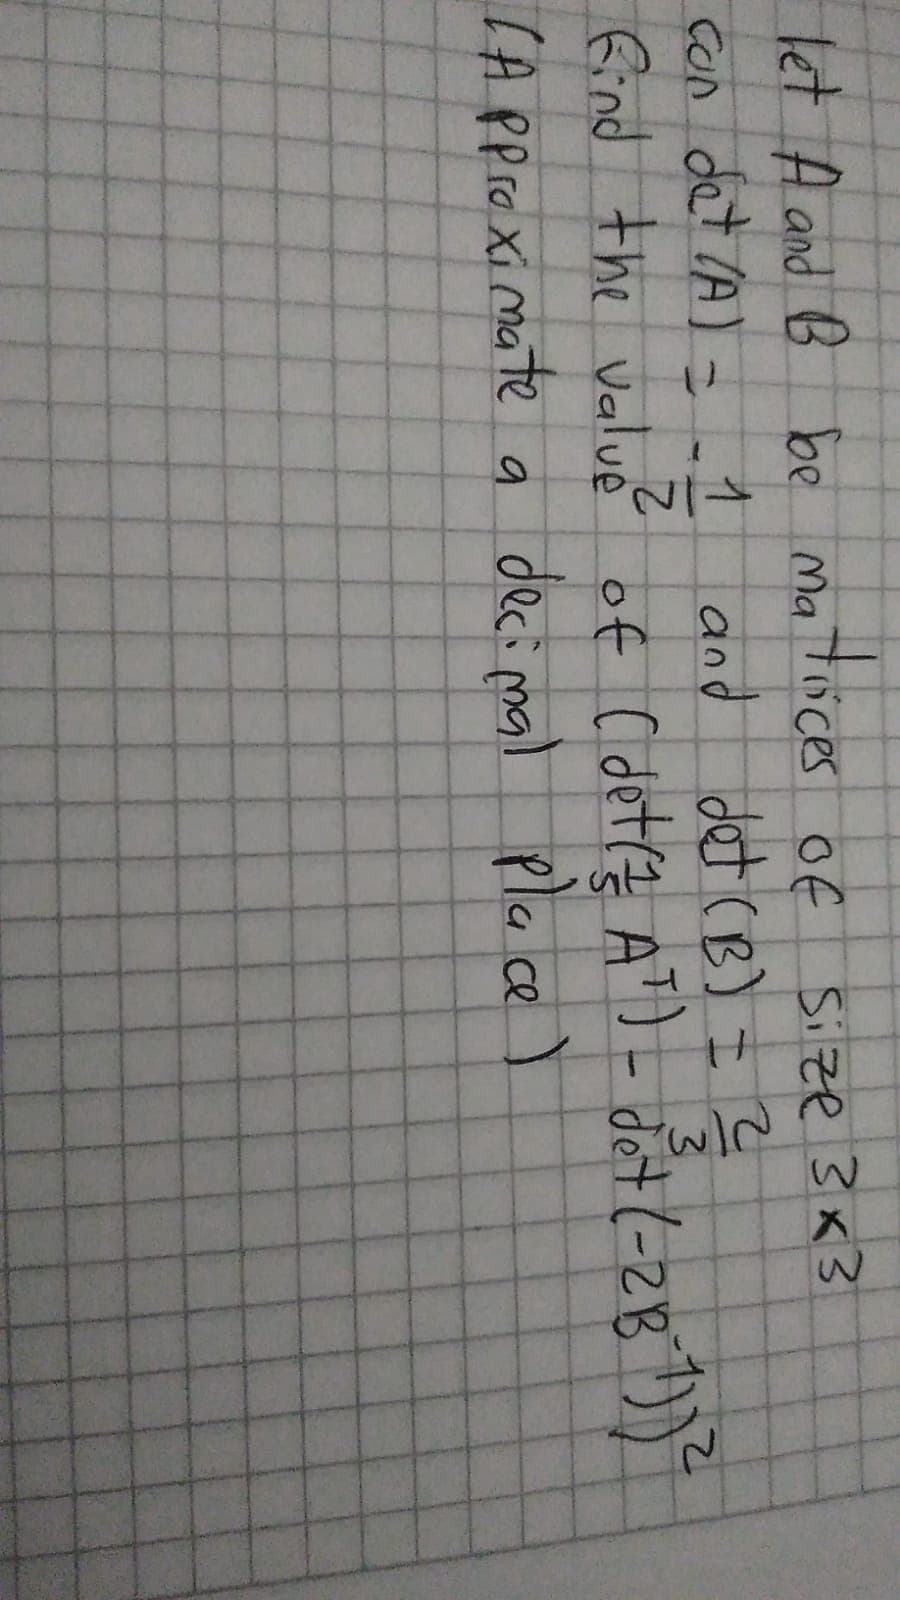 let A and B be matrices of size 3x3
con det(A) = -1/2 and det(B) = 2/3
find the value of (det(1/5 A^T) - det(-2B^-1))^2
(Approximate a decimal place)